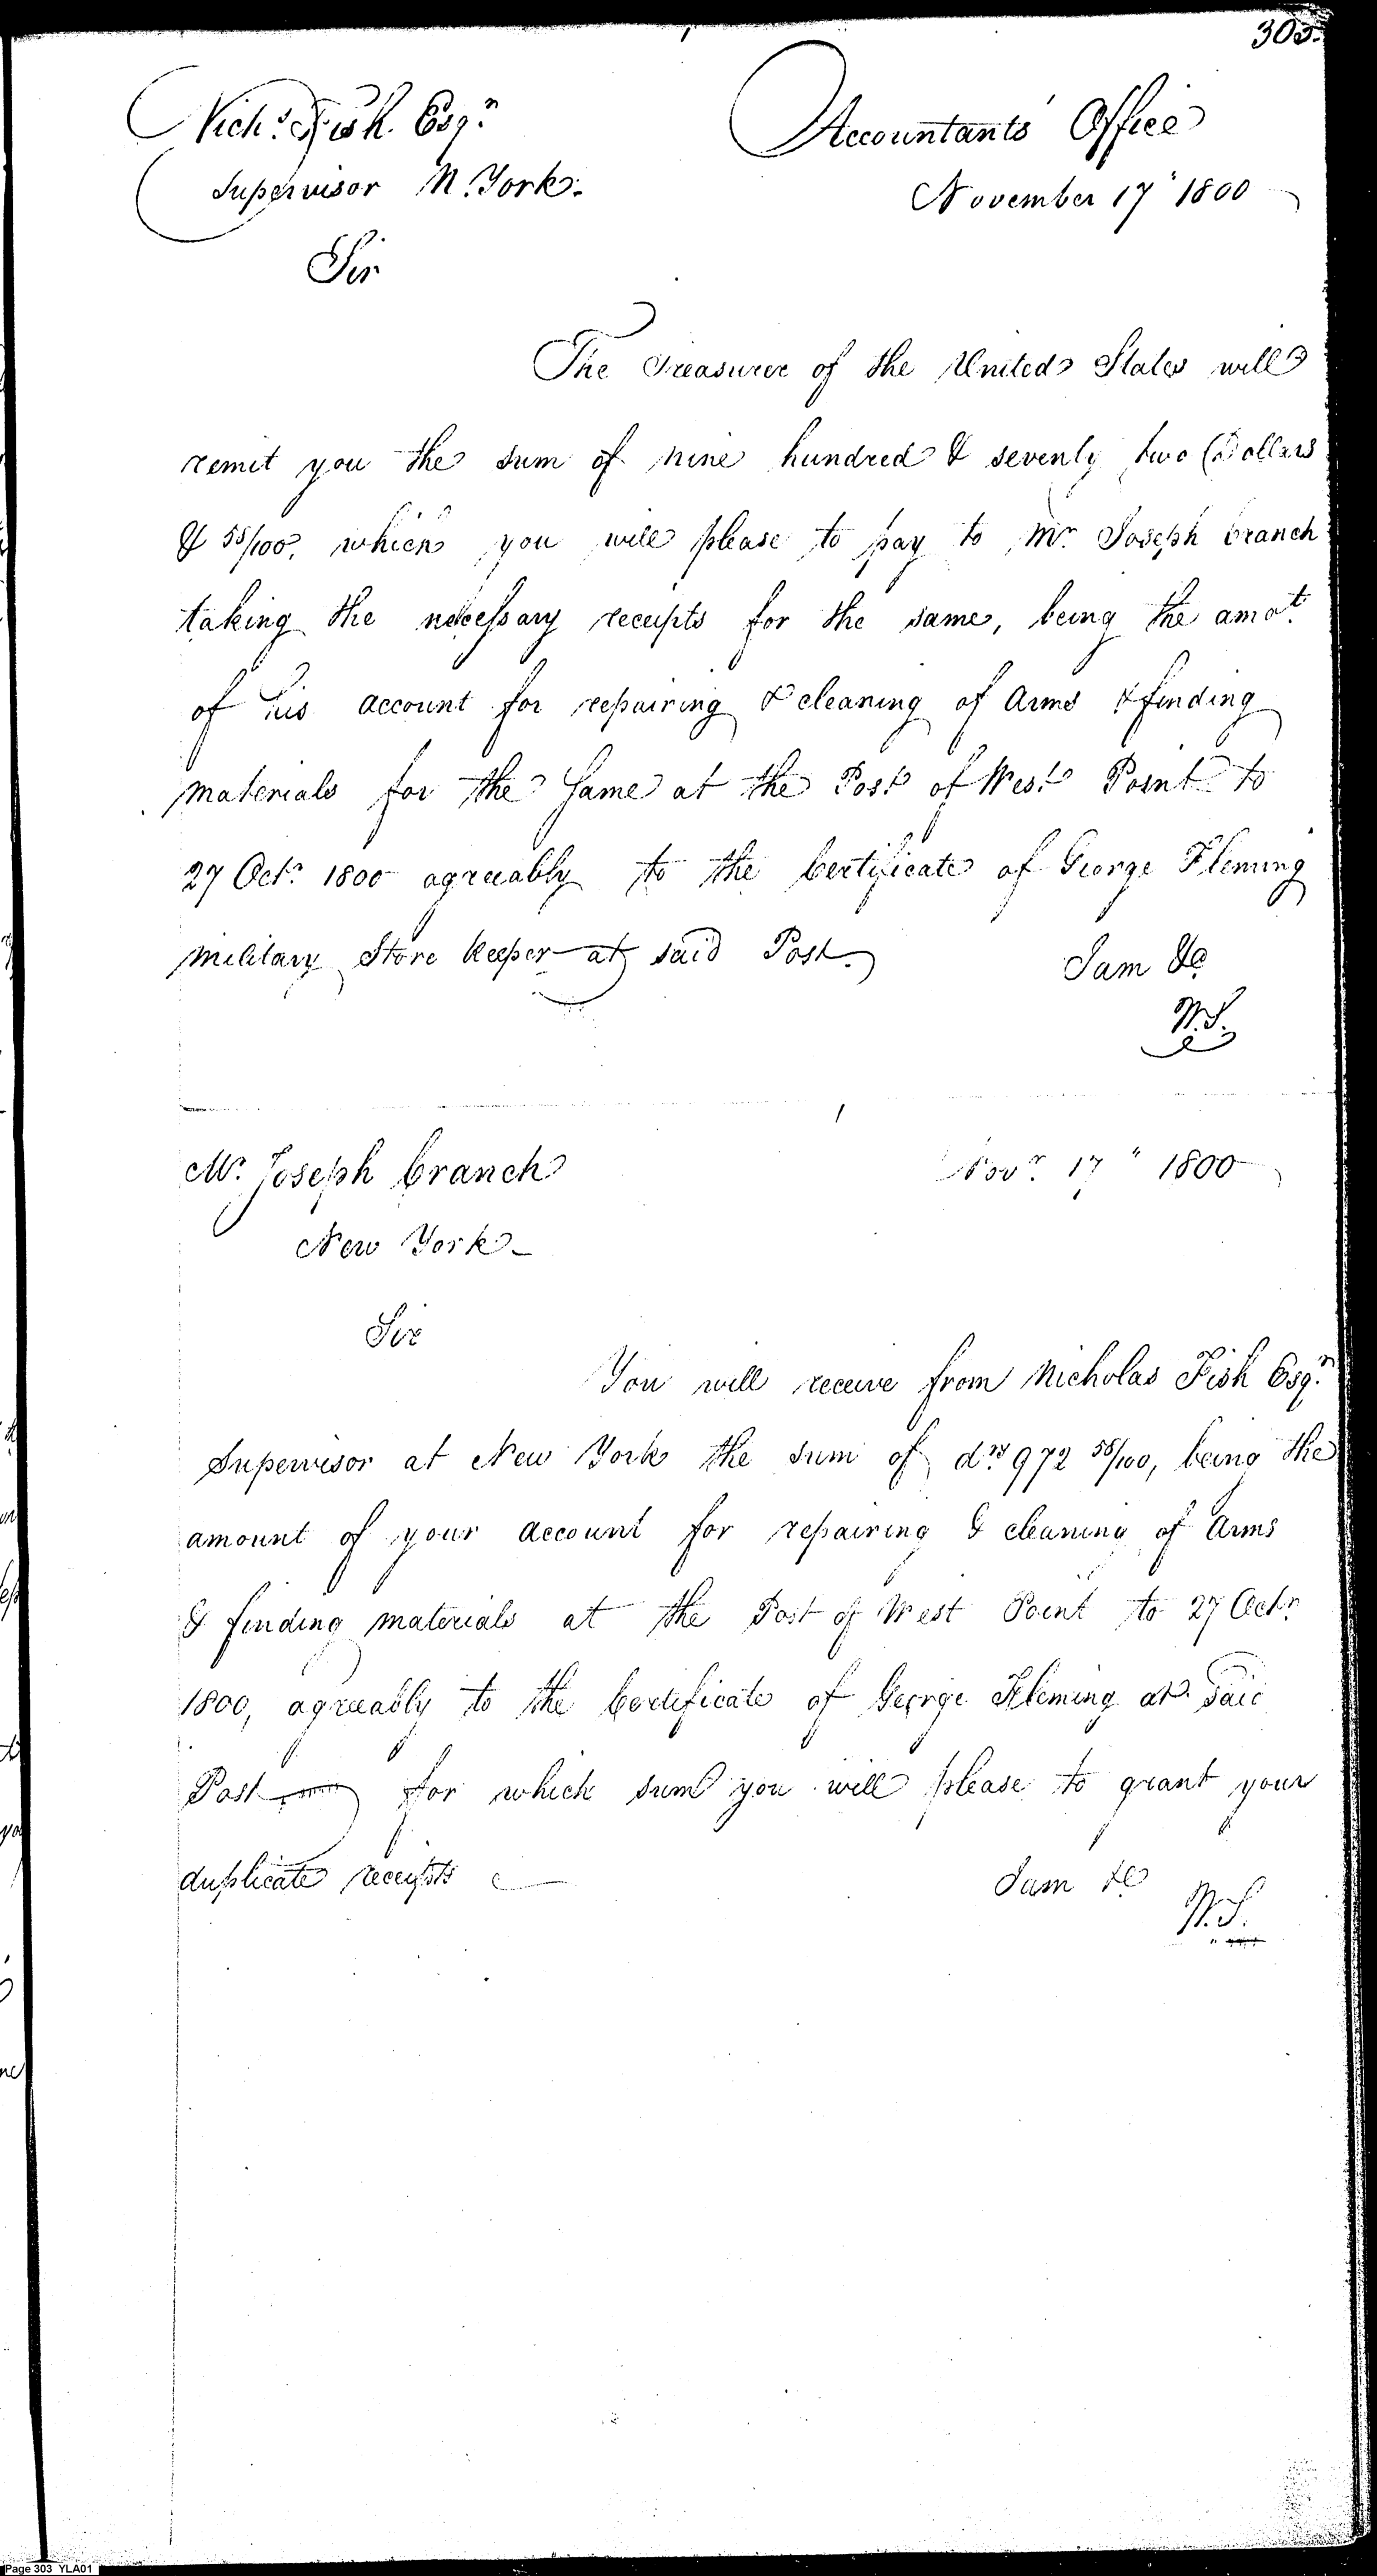 303.
Nichs. Fish. Esqr.
Supervisor N. York.
Accountants Office
November 17" 1800
Sir
The Treasurer of the United States will
remit you the sum of nine hundred & seventy two Dollars
& 58/100, which you will please to pay to Mr. Joseph Cranch
taking the necessary receipts for the same, being the amot.
of his account for repairing & cleaning of Arms & finding
materials for the Same at the Post of West Point to
27 Octr. 1800 agreeably to the Certificate of George Fleming
military Store keeper at said Post.
I am &c
W.S.
Mr. Joseph Cranch
New York
Novr. 17" 1800
Sir
You will receive from Nicholas Fish Esqr.
Supervisor at New York the sum of drs. 972 58/100, being the
amount of your account for repairing & cleaning of Arms
& finding materials at the Post of West Point to 27 Octr.
1800, agreeably to the Certificate of George Fleming at said
Post for which sum you will please to grant your
duplicate receipts
I am &c
W.S.
Page 303 YLA01